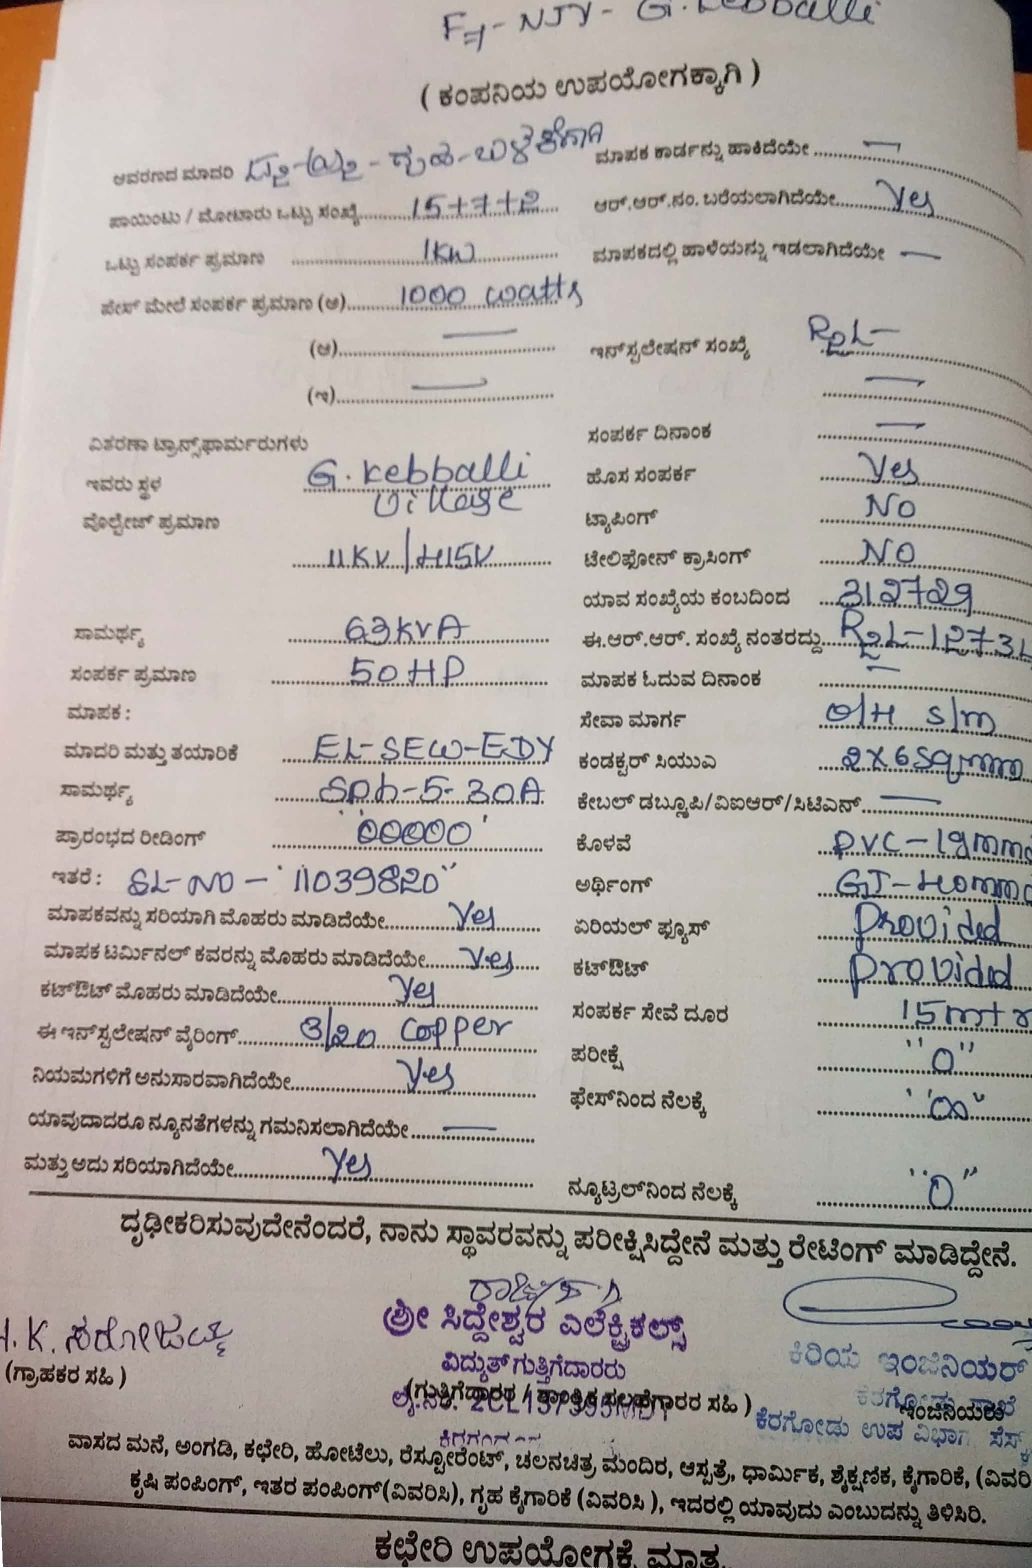 F4-NJY- G.Kebballi
( ಕಂಪನಿಯ ಉಪಯೋಗಕ್ಕಾಗಿ )
ಆವರಣದ ಮಾದರಿ ಗೃಹ-ಬಳಕೆಗಾಗಿ ಮಾಪಕ ಕಾರ್ಡನ್ನು ಹಾಕಿದೆಯೇ ........ —
ಪಾಯಿಂಟು / ಮೋಟಾರು ಒಟ್ಟು ಸಂಖ್ಯೆ........ 15+7+2 ಆರ್.ಆರ್.ನಂ. ಬರೆಯಲಾಗಿದೆಯೇ........ Yes
ಒಟ್ಟು ಸಂಪರ್ಕ ಪ್ರಮಾಣ ........ 1KW ಮಾಪಕದಲ್ಲಿ ಹಾಳೆಯನ್ನು ಇಡಲಾಗಿದೆಯೇ —
ಫೇಸ್ ಮೇಲೆ ಸಂಪರ್ಕ ಪ್ರಮಾಣ (ಅ)........ 1000 watts
(ಆ)........ — ಇನ್‌ಸ್ಟಲೇಷನ್ ಸಂಖ್ಯೆ R2L-
(ಇ)........ — —
ವಿತರಣಾ ಟ್ರಾನ್ಸ್‌ಫಾರ್ಮರುಗಳು ಸಂಪರ್ಕ ದಿನಾಂಕ —
ಇವರು ಸ್ಥಳ G. Kebballi Village ಹೊಸ ಸಂಪರ್ಕ Yes
ವೊಲ್ಟೇಜ್ ಪ್ರಮಾಣ ಟ್ಯಾಪಿಂಗ್ NO
11KV/415V ಟೇಲಿಫೋನ್ ಕ್ರಾಸಿಂಗ್ NO
ಯಾವ ಸಂಖ್ಯೆಯ ಕಂಬದಿಂದ 312729
ಸಾಮರ್ಥ್ಯ 63KVA ಈ.ಆರ್.ಆರ್. ಸಂಖ್ಯೆ ನಂತರದ್ದು R2L-12731
ಸಂಪರ್ಕ ಪ್ರಮಾಣ 50HP ಮಾಪಕ ಓದುವ ದಿನಾಂಕ —
ಮಾಪಕ : ಸೇವಾ ಮಾರ್ಗ O/H S/m
ಮಾದರಿ ಮತ್ತು ತಯಾರಿಕೆ EL-SEW-EDY ಕಂಡಕ್ಟರ್ ಸಿಯುಎ 2X6Sqmm
ಸಾಮರ್ಥ್ಯ Sph-5-30A ಕೇಬಲ್ ಡಬ್ಲ್ಯೂಪಿ/ವಿಐಆರ್/ಸಿಟಿಎನ್........ —
ಪ್ರಾರಂಭದ ರೀಡಿಂಗ್ "00000" ಕೊಳವೆ PVC-19mm
ಇತರೆ : SL-NO- "11039820" ಅರ್ಥಿಂಗ್ GI-40mm
ಮಾಪಕವನ್ನು ಸರಿಯಾಗಿ ಮೊಹರು ಮಾಡಿದೆಯೇ........ Yes ಏರಿಯಲ್ ಫ್ಯೂಸ್ Provided
ಮಾಪಕ ಟರ್ಮಿನಲ್ ಕವರನ್ನು ಮೊಹರು ಮಾಡಿದೆಯೇ........ Yes ಕಟ್‌ಔಟ್ Provided
ಕಟ್‌ಔಟ್ ಮೊಹರು ಮಾಡಿದೆಯೇ........ Yes ಸಂಪರ್ಕ ಸೇವೆ ದೂರ 15mtr
ಈ ಇನ್‌ಸ್ಟಲೇಷನ್ ವೈರಿಂಗ್........ 3/20 Copper ಪರೀಕ್ಷೆ "0"
ನಿಯಮಗಳಿಗೆ ಅನುಸಾರವಾಗಿದೆಯೇ........ Yes ಫೇಸ್‌ನಿಂದ ನೆಲಕ್ಕೆ "∞"
ಯಾವುದಾದರೂ ನ್ಯೂನತೆಗಳನ್ನು ಗಮನಿಸಲಾಗಿದೆಯೇ........ —
ಮತ್ತು ಅದು ಸರಿಯಾಗಿದೆಯೇ........ Yes ನ್ಯೂಟ್ರಲ್‌ನಿಂದ ನೆಲಕ್ಕೆ "0"
ದೃಢೀಕರಿಸುವುದೇನೆಂದರೆ, ನಾನು ಸ್ಥಾವರವನ್ನು ಪರೀಕ್ಷಿಸಿದ್ದೇನೆ ಮತ್ತು ರೇಟಿಂಗ್ ಮಾಡಿದ್ದೇನೆ.
H.K. ಸರೋಜಮ್ಮ ಶ್ರೀ ಸಿದ್ದೇಶ್ವರ ಎಲೆಕ್ಟ್ರಿಕಲ್ಸ್
(ಗ್ರಾಹಕರ ಸಹಿ ) ವಿದ್ಯುತ್ ಗುತ್ತಿಗೆದಾರರು ಕಿರಿಯ ಇಂಜಿನಿಯರ್
(ಗುತ್ತಿಗೆದಾರರ / ತಾಂತ್ರಿಕ ಸಲಹೆಗಾರರ ಸಹಿ ) ಕೆರಗೋಡು ಶಾಖೆ ಇಂಜಿನಿಯರು
ಲೈ.ನಂ. ಕೆರಗೋಡು ಉಪ ವಿಭಾಗ ಸೆಸ್ಕ್
ವಾಸದ ಮನೆ, ಅಂಗಡಿ, ಕಛೇರಿ, ಹೋಟೆಲು, ರೆಸ್ಟೋರೆಂಟ್, ಚಲನಚಿತ್ರ ಮಂದಿರ, ಆಸ್ಪತ್ರೆ, ಧಾರ್ಮಿಕ, ಶೈಕ್ಷಣಿಕ, ಕೈಗಾರಿಕೆ, (ವಿವರಿ
ಕೃಷಿ ಪಂಪಿಂಗ್, ಇತರ ಪಂಪಿಂಗ್(ವಿವರಿಸಿ), ಗೃಹ ಕೈಗಾರಿಕೆ (ವಿವರಿಸಿ ), ಇದರಲ್ಲಿ ಯಾವುದು ಎಂಬುದನ್ನು ತಿಳಿಸಿರಿ.
ಕಛೇರಿ ಉಪಯೋಗಕ್ಕೆ ಮಾತ್ರ.